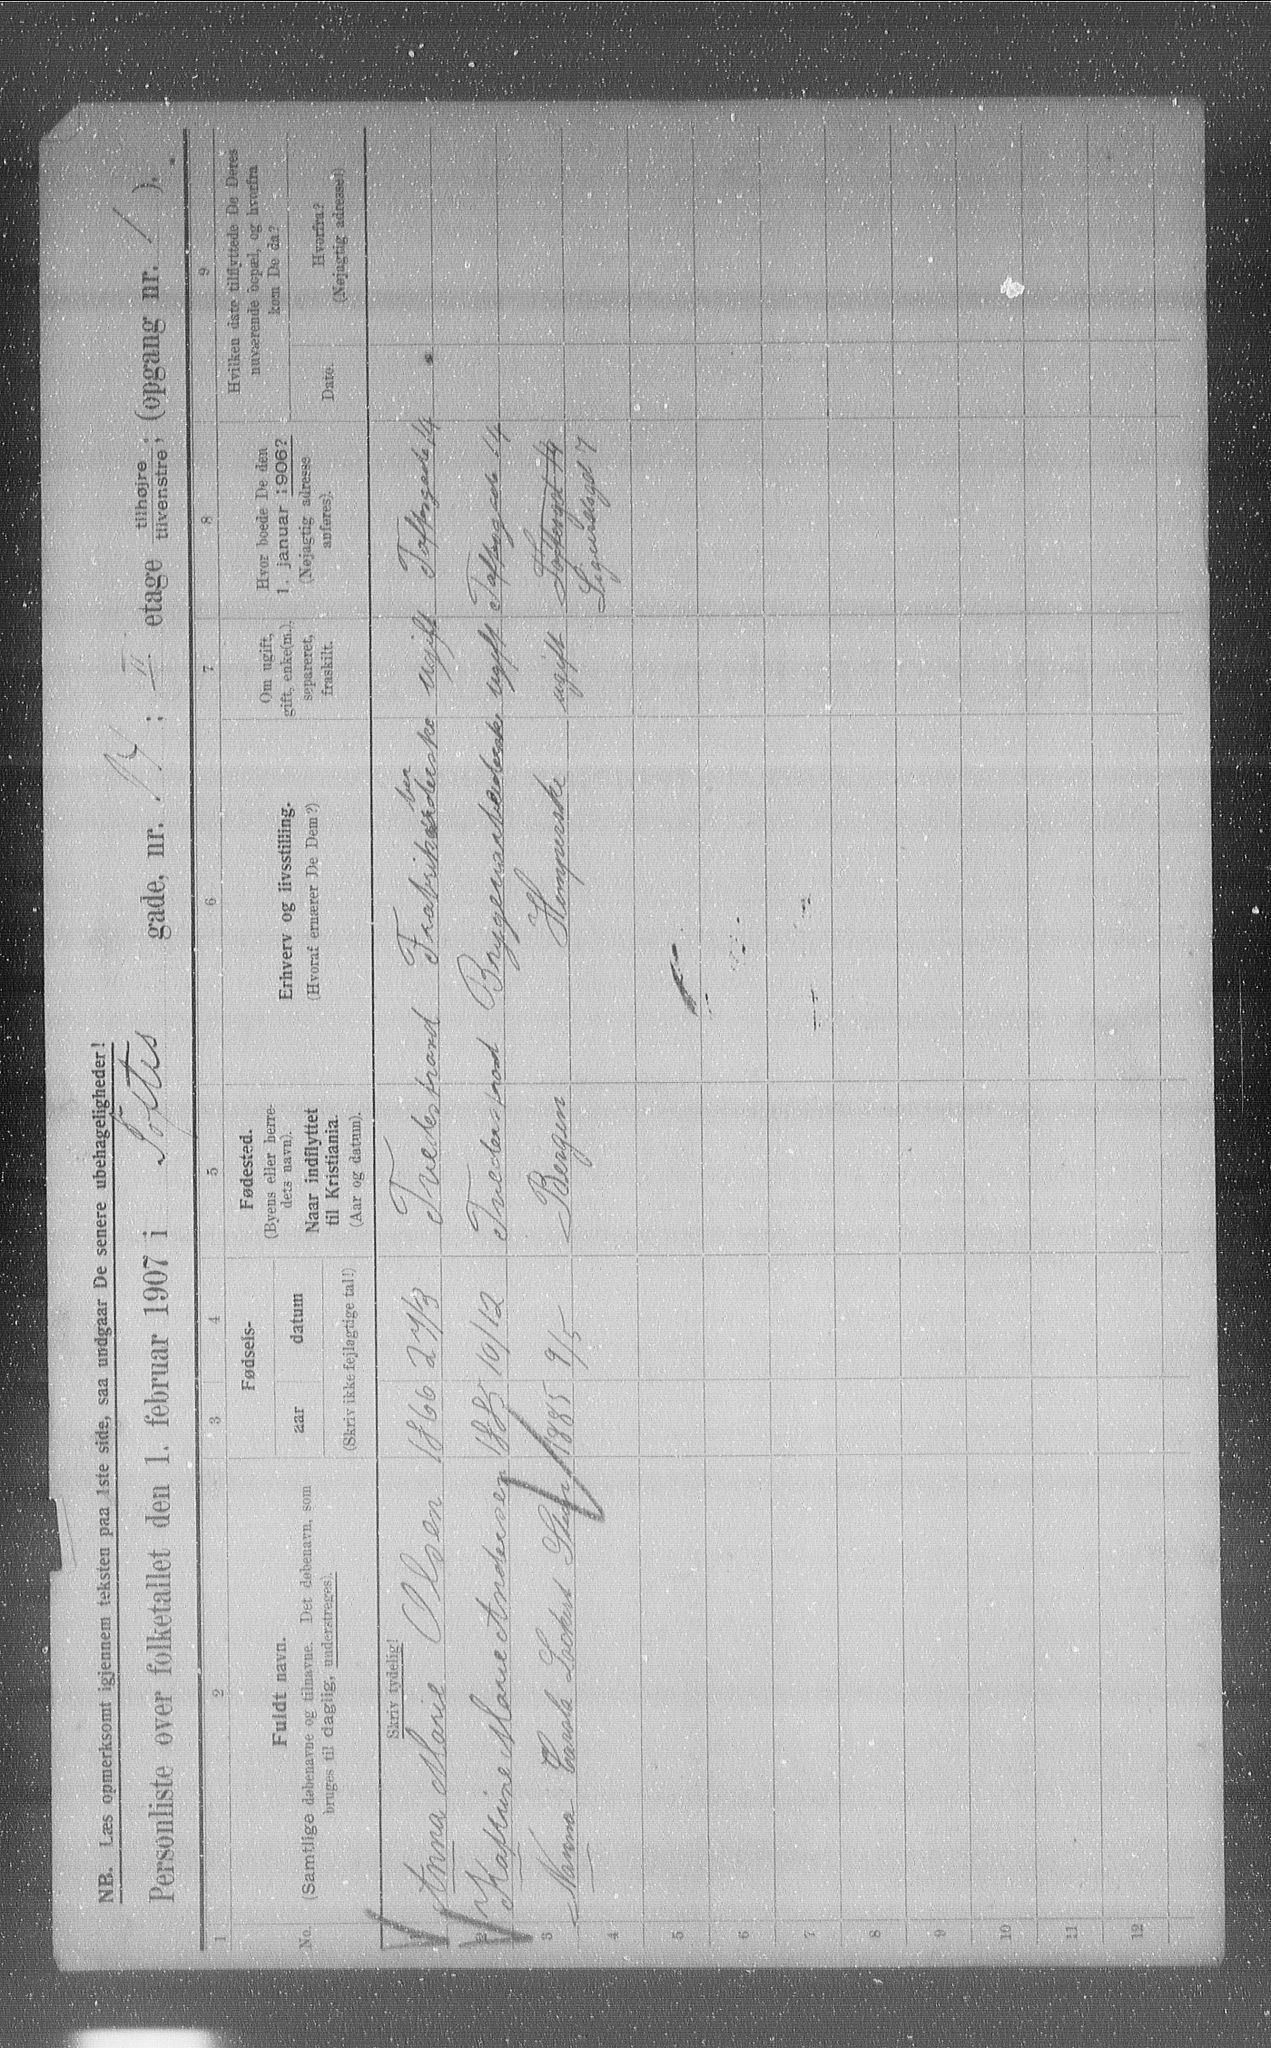 NB. Læs opmerksomt igjennem teksten paa 1ste side, saa undgaar De senere ubehageligheder!
Personliste over folketallet den 1. februar 1907 i Toftes gade, nr. 14 ; II etage tilhøjre tilvenstre; (opgang nr. 1 ).
1 2 3 4 5 6 7 8 9
No.
Fuldt navn.
(Samtlige døbenavne og tilnavne. Det døbenavn, som
bruges til daglig, understreges).
Fødsels-
aar datum
(Skriv ikke fejlagtige tal!)
Fødested.
(Byens eller herre-
dets navn).
Naar indflyttet
til Kristiania.
(Aar og datum).
Erhverv og livsstilling.
(Hvoraf ernærer De Dem?)
Om ugift,
gift, enke(m.),
separeret,
fraskilt.
Hvor boede De den
1. januar 1906?
(Nøjagtig adresse
anføres).
Hvilken date tilflyttede De Deres
nuværende bopæl, og hvorfra
kom De da?
Dato.
Hvorfra?
(Nøjagtig adresse!)
Skriv tydelig!
1 Anna Marie Olsen 1866 27/3 Tvedestrand ugift Toftesgade 14
2 Kathrine Marie Andersen 1885 10/12 Tvedestrand Bryggeriarbeiderske ugift Toftesgade 14
3 Nanna Carola 1885 9/5 Bergen ugift Toftesgd 14
7
4
5
6
7
8
9
10
11
12